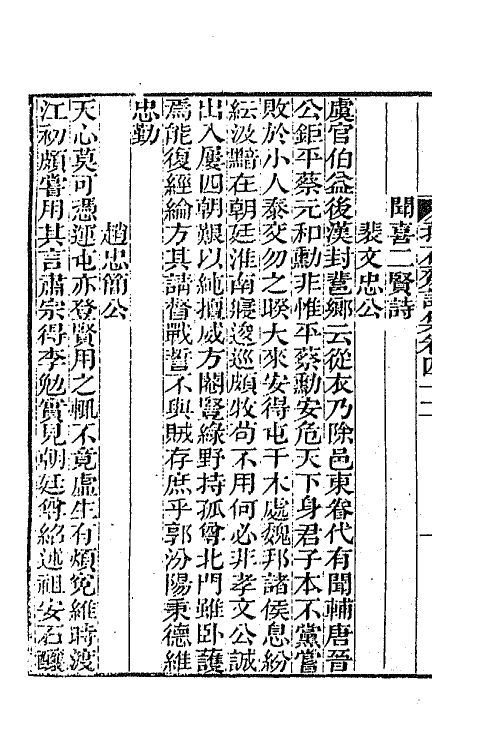 聞喜二賢詩
裴文忠公
虞官伯益後漢封𨛬鄉云從衣乃除邑東眷代有聞輔唐晉
公鉅平蔡元和勳非惟平蔡勳安危天下身君子本不黨嘗
敗於小人泰交勿之睽大來安得屯干木處魏邦諸侯息紛
紜汲黯在朝廷淮南寢逡巡頗牧尚不用何必非孝文公誠
出入屢四朝艱以純擅威方閹豎綠野持孤尊北門雖臥護
焉能復經綸方其請督戰誓不與賊存庶乎郭汾陽秉德維
忠勤
趙忠簡公
天心莫可憑運屯亦登賢用之輒不竟虛生有煩冤維時渡
江初頗嘗用其言肅宗得李勉實見朝廷尊紹述祖安石釀